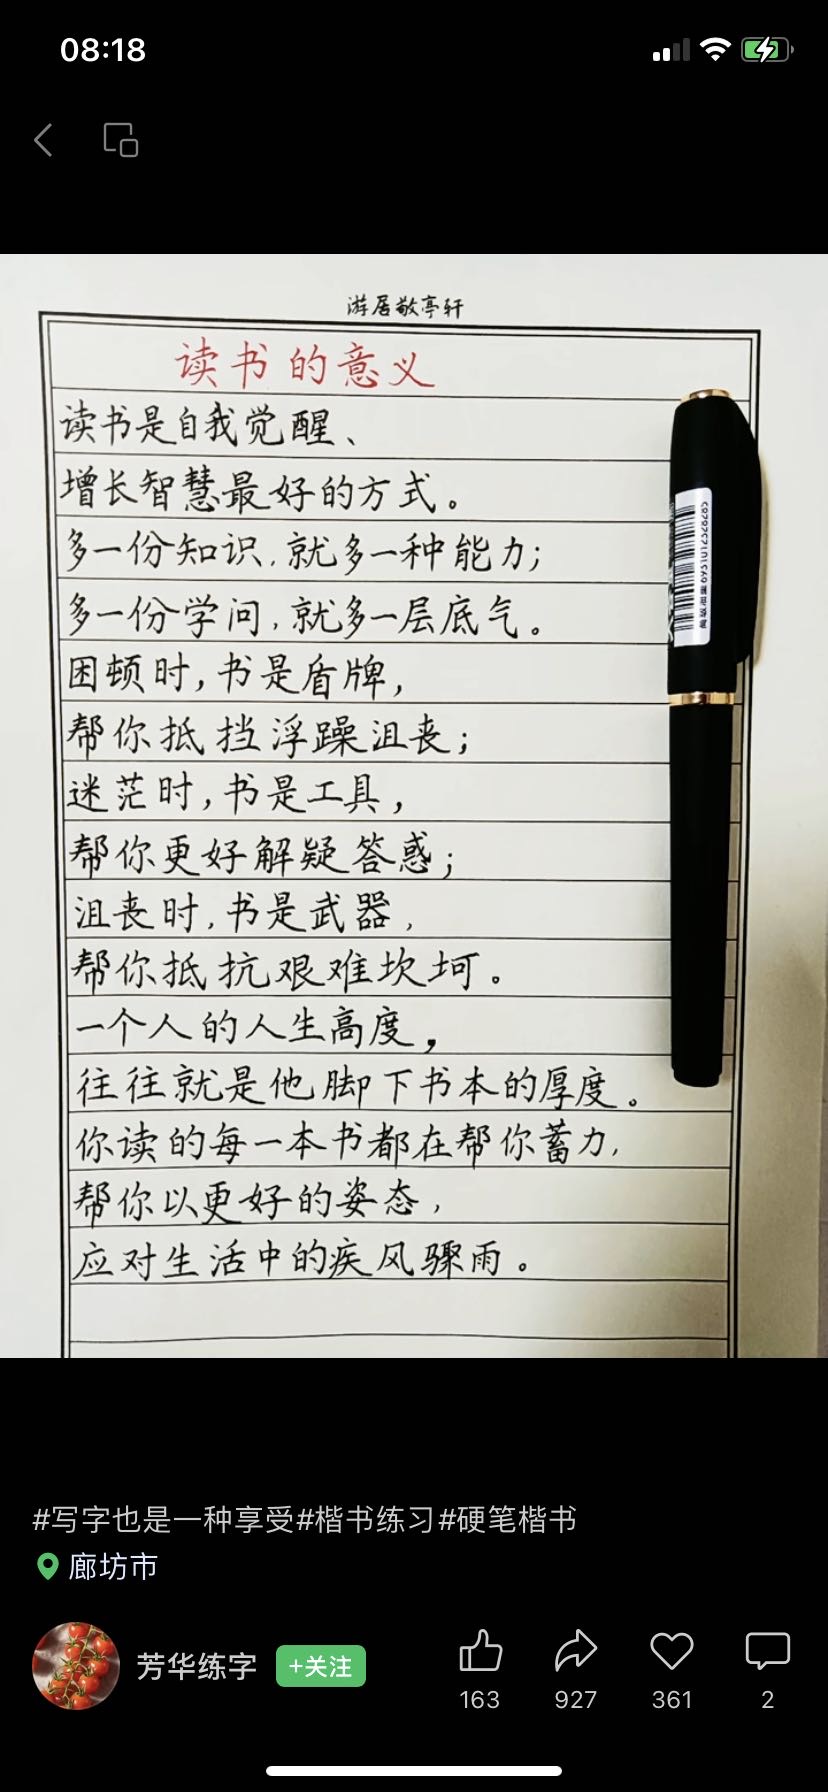 08:18
游居敬亭轩
读书的意义
读书是自我觉醒、
增长智慧最好的方式。
多一份知识,就多一种能力;
多一份学问,就多一层底气。
困顿时,书是盾牌,
帮你抵挡浮躁沮丧;
迷茫时,书是工具,
帮你更好解疑答惑;
沮丧时,书是武器,
帮你抵抗艰难坎坷。
一个人的人生高度,
往往就是他脚下书本的厚度。
你读的每一本书都在帮你蓄力,
帮你以更好的姿态,
应对生活中的疾风骤雨。
#写字也是一种享受#楷书练习#硬笔楷书
廊坊市
芳华练字 +关注
163 927 361 2